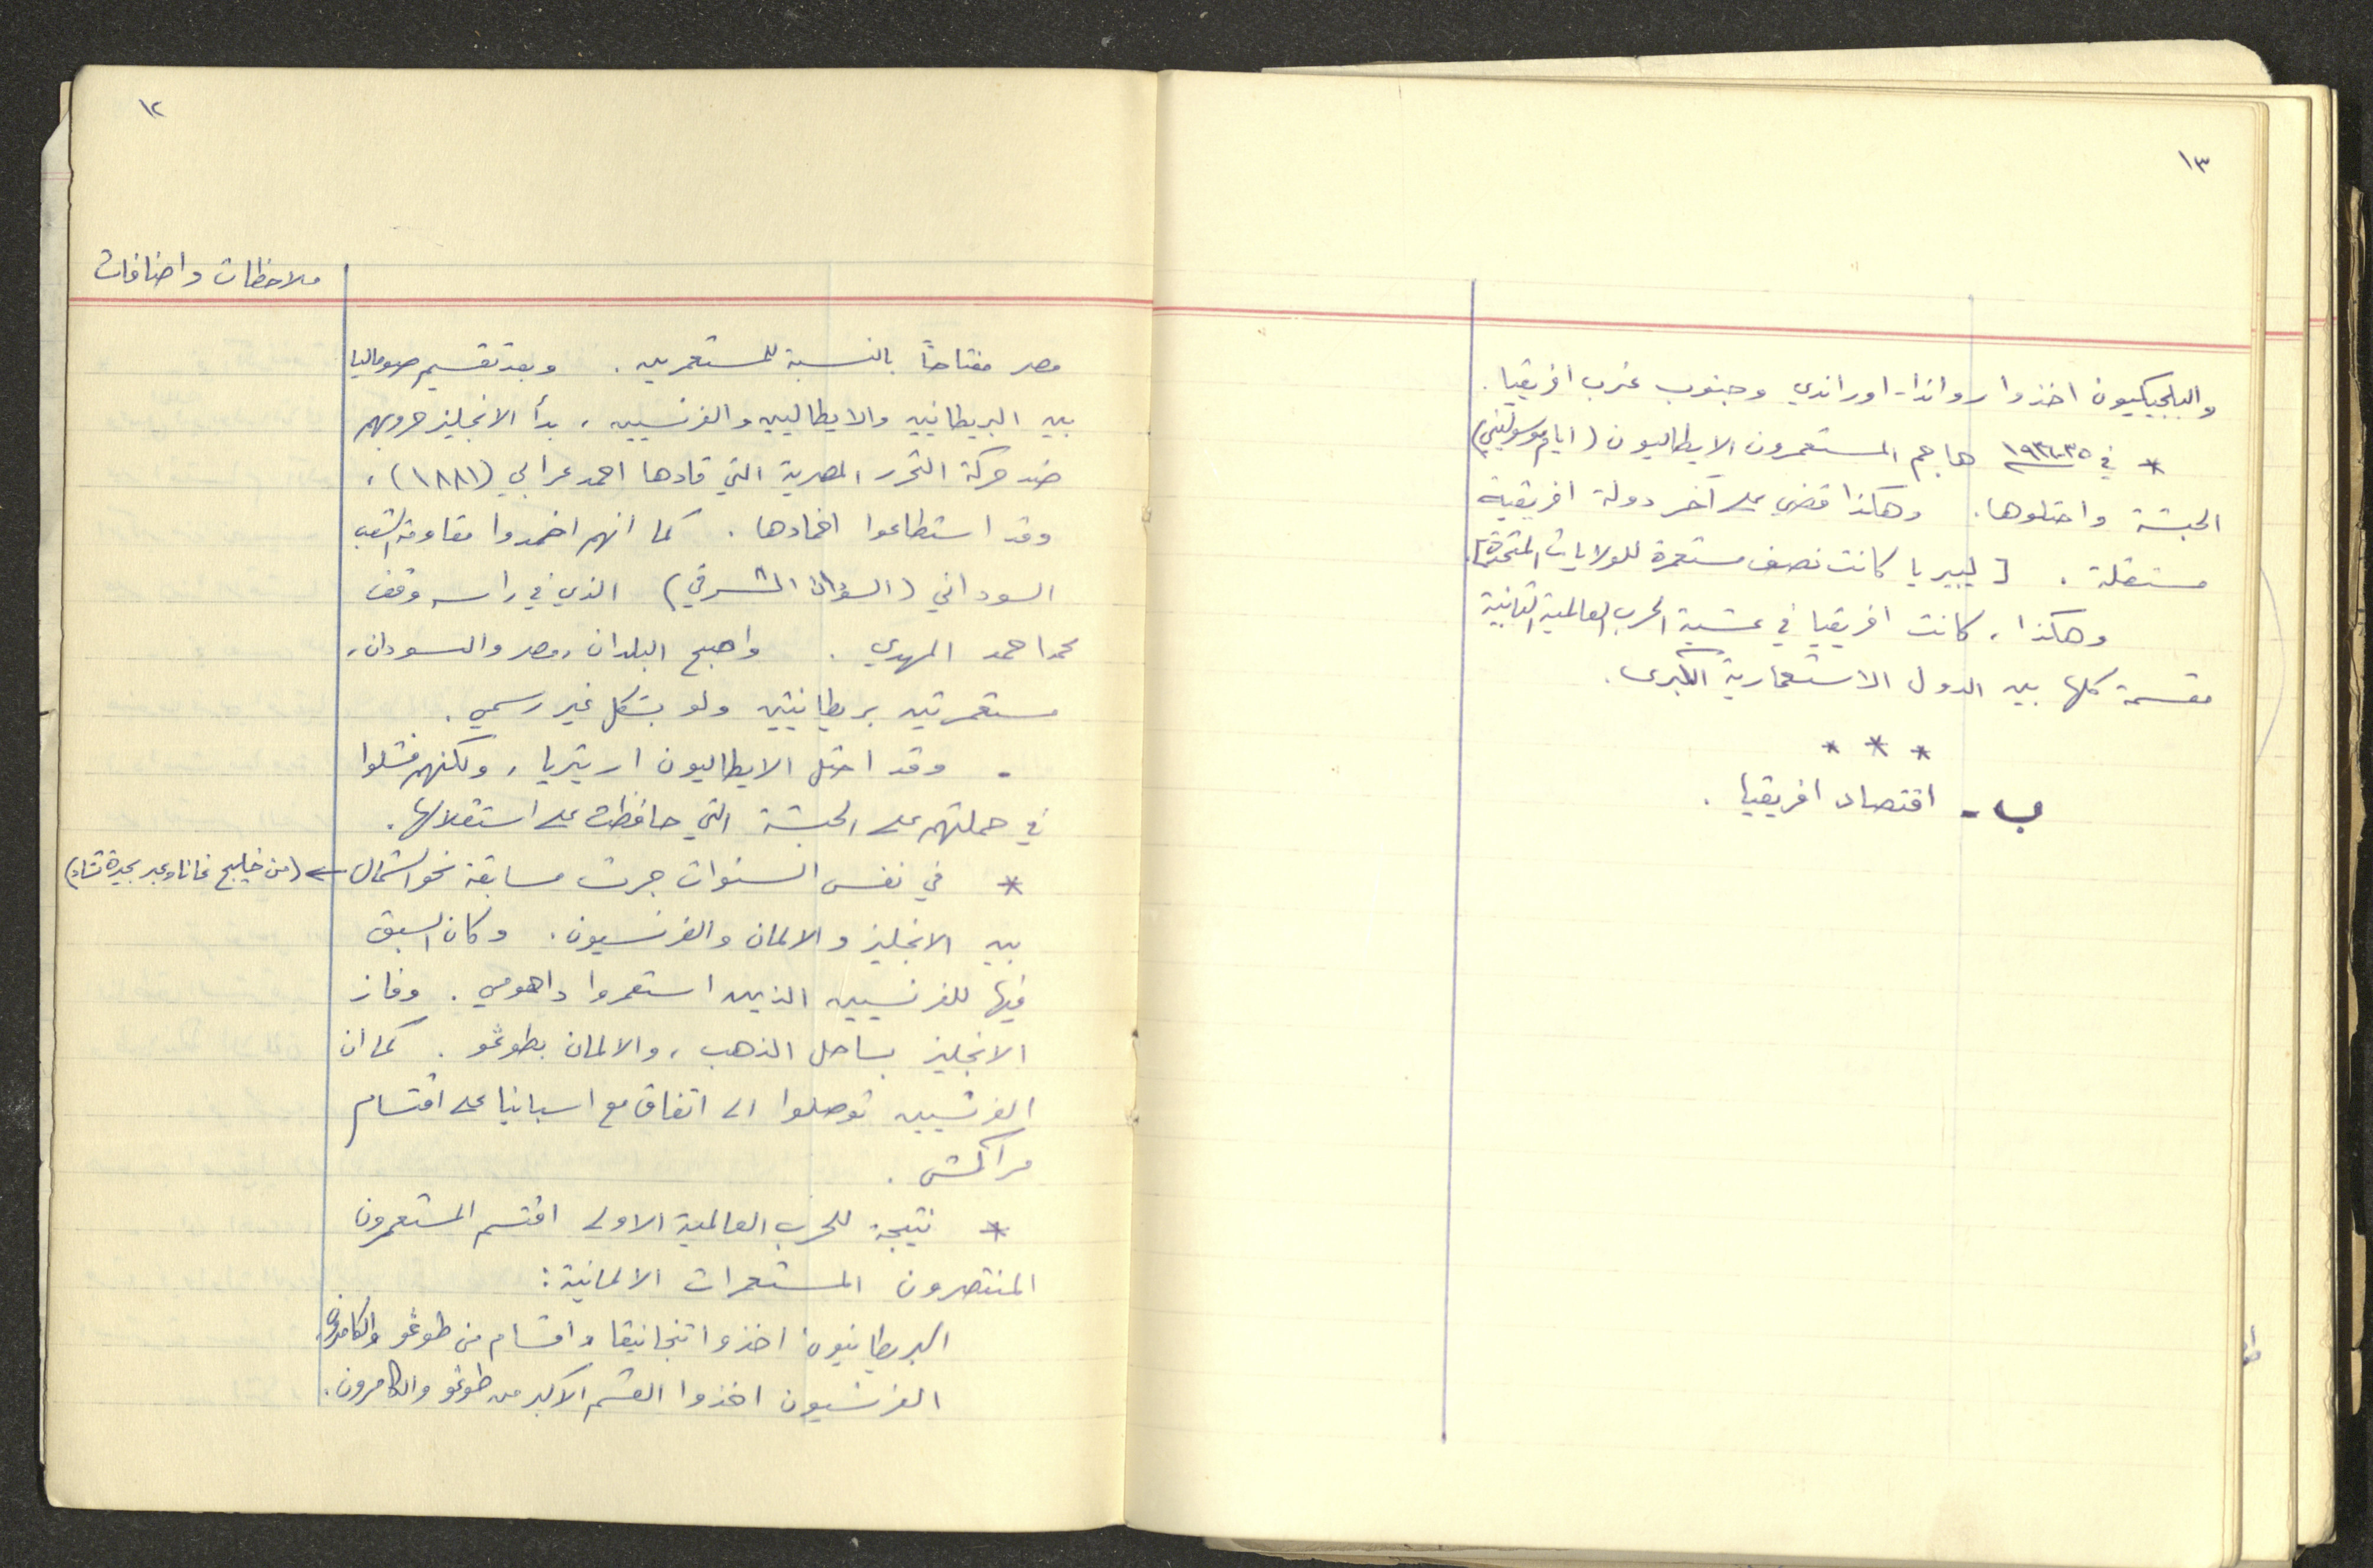 ١٢
ملاحظات واضافات
مصر مفتاحاً بالنسبة للمستعمرين . وبعد تقسيم صوماليا
بين البريطانيين والايطاليين والفرنسيين ، بدأ الانجليز حروبهم
ضد حركة التحرر المصرية التي قادها احمد عرابي (١٨٨١) ،
وقد استطاعوا اخمادها . كما انهم اخمدوا مقاومة الشعب
السوداني (السودان الشرقي) الذي في راسه وقف
محمد احمد المهدي . واصبح البلدان ، مصر والسودان ،
مستعمرتين بريطانيتين ولو بشكل غير رسمي .
- وقد احتل الايطاليون اريتريا ، ولكنهم فشلوا
في حملتهم على الحبشة التي حافظت على استقلالها .
* في نفس السنوات جرت مسابقة نحو الشمال ← (من خليج غانا وعبر بحيرة تشاد)
بين الانجليز والالمان والفرنسيون . وكان السبق
فيها للفرنسيين الذين استعمروا داهومي . وفاز
الانجليز بساحل الذهب ، والالمان بطوغو . كما ان
الفرنسيين توصلوا الى اتفاق مع اسبانيا على اقتسام
مراكش .
* نتيجة للحرب العالمية الاولى اقتسم المستعمرون
المنتصرون المستعمرات الالمانية :
البريطانيون اخذوا تنجانيقا واقسام من طوغو والكامرون .
الفرنسيون اخذوا القسم الاكبر من طوغو والكامرون .
١٣
والبلجيكيون اخذوا رواندا - اوراندي وجنوب غرب افريقيا .
* في ١٩٣٤-٣٥ هاجم المستعمرون الايطاليون (ايام موسوليني)
الحبشة واحتلوها . وهكذا قضي على آخر دولة افريقية
مستقلة . [ ليبيريا كانت نصف مستعمرة للولايات المتحدة ] .
وهكذا ، كانت افريقيا في عشية الحرب العالمية الثانية
مقسمة كلها بين الدول الاستعمارية الكبرى .
* * *
ب - اقتصاد افريقيا .